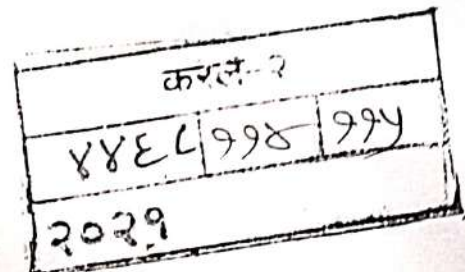 करल-२
४४६८ ११४ ११५
२०२१